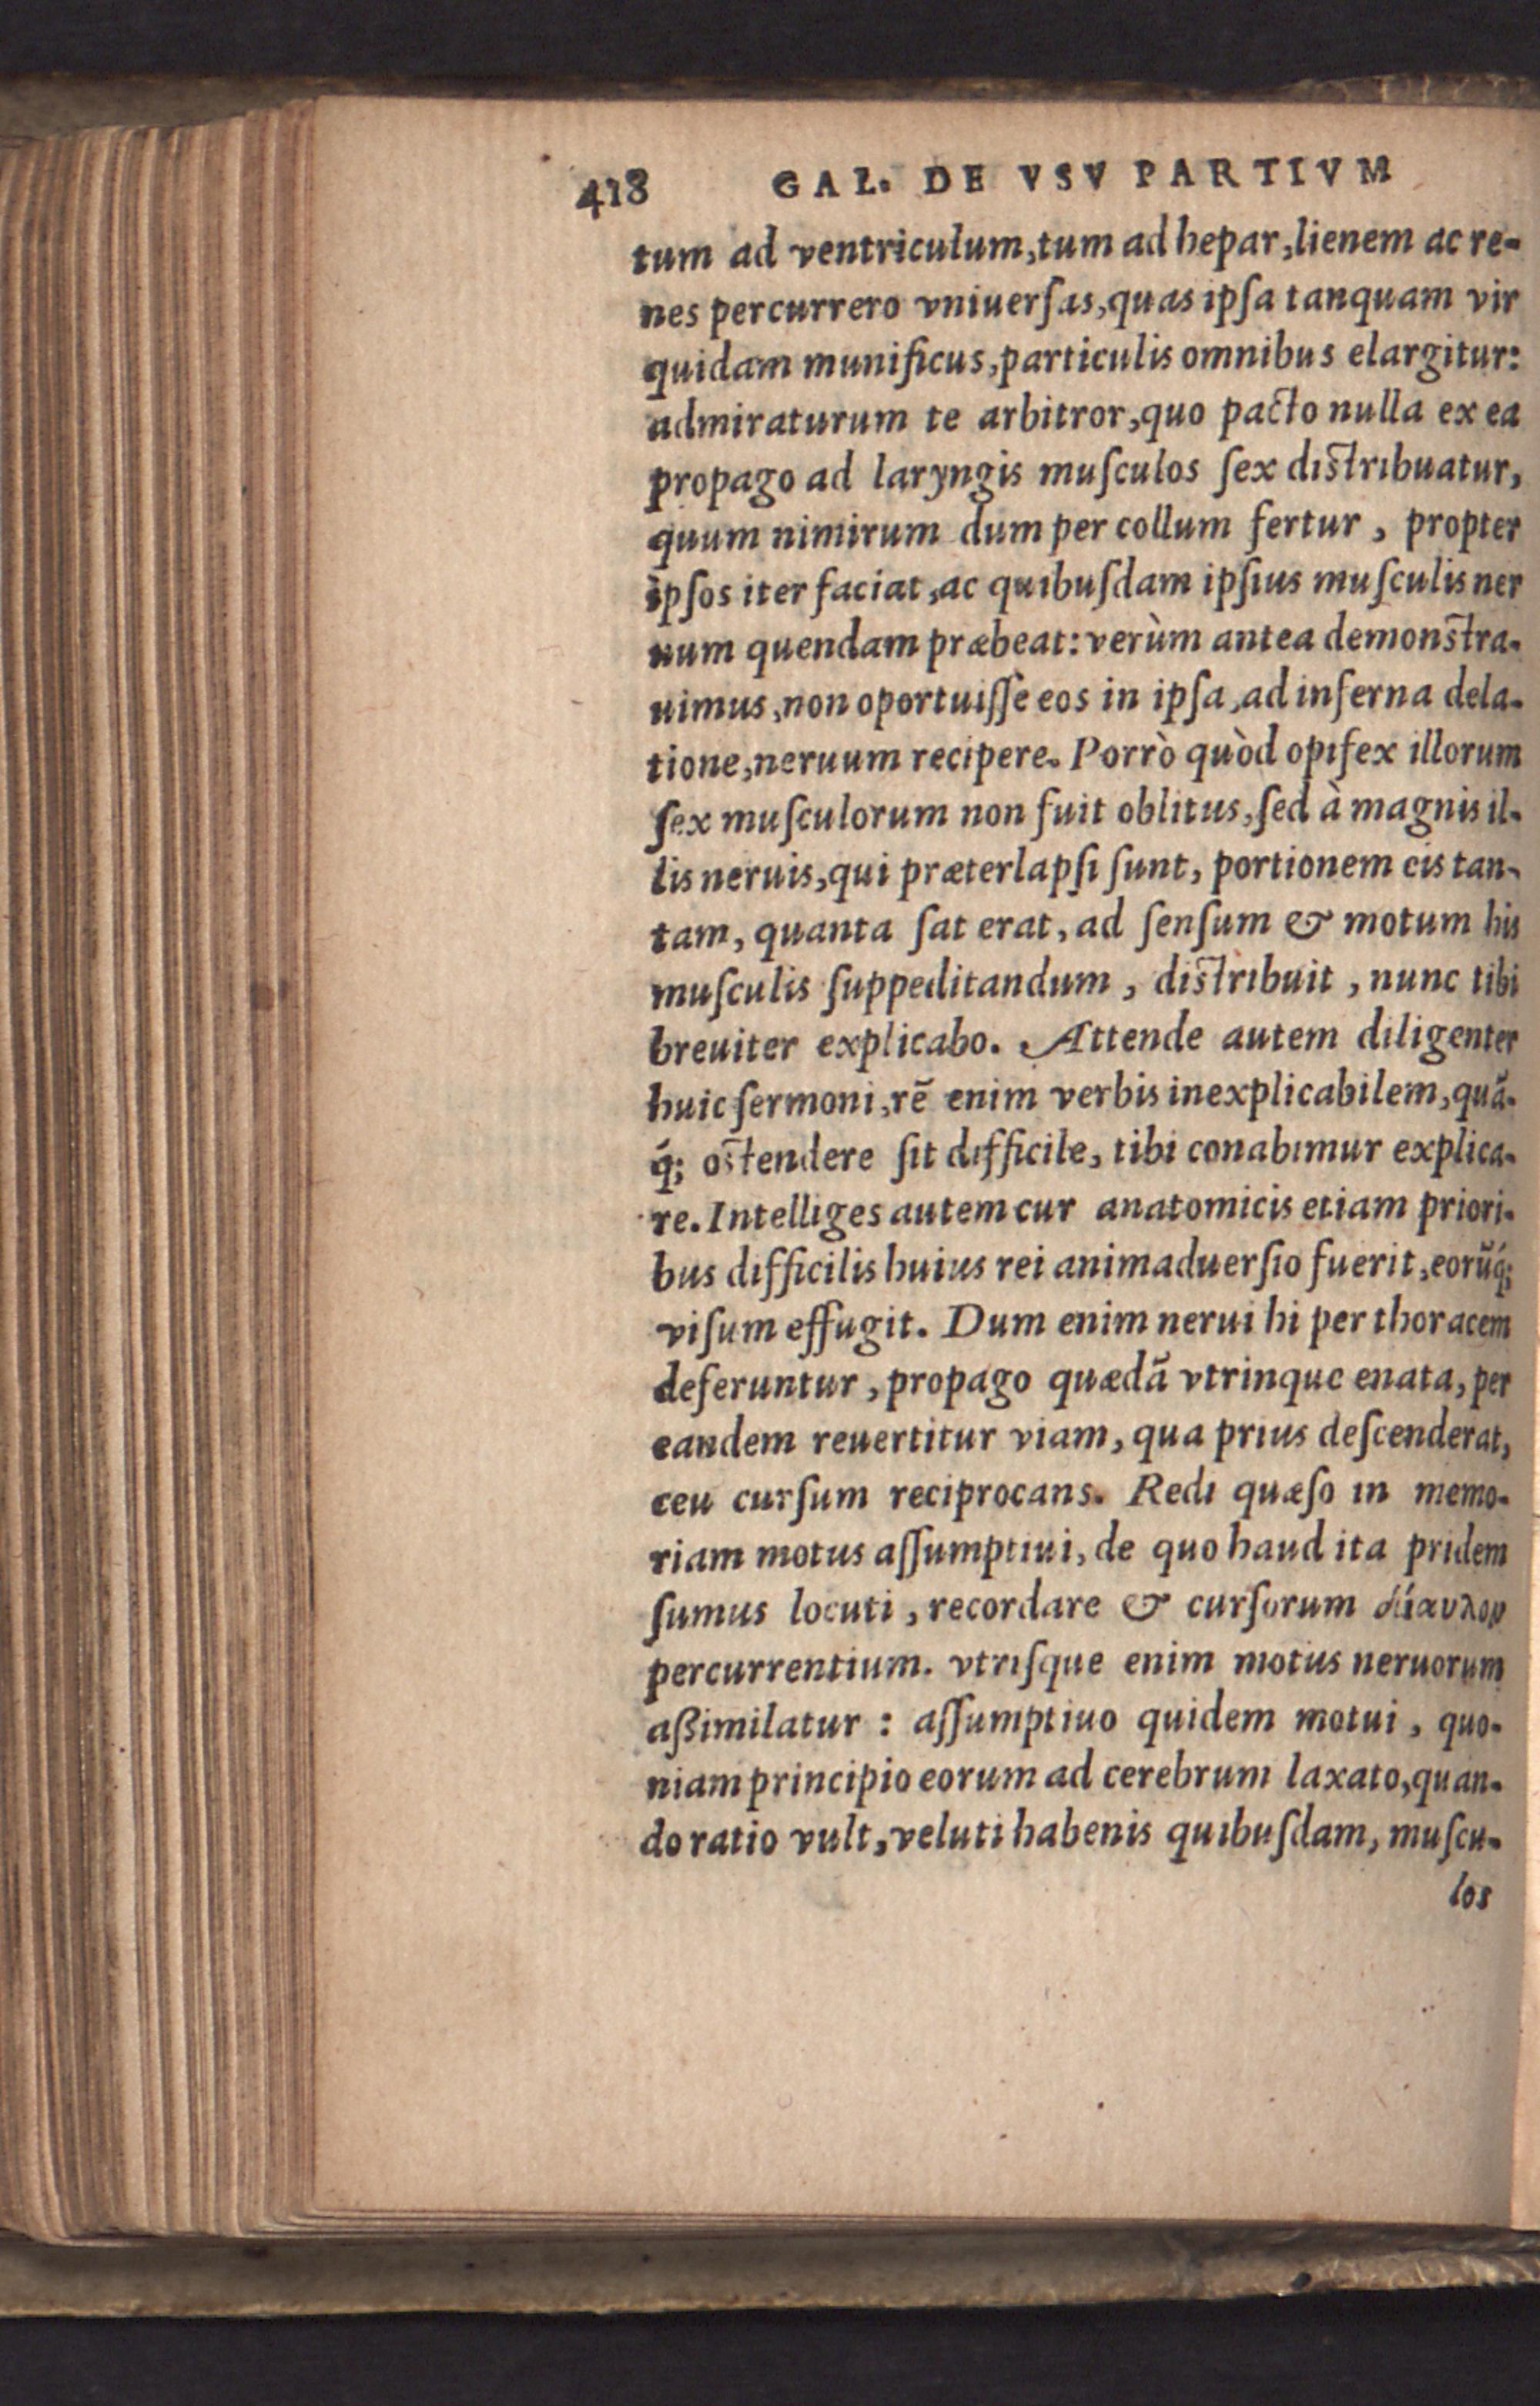 418 GAL. DE VSV PARTIVM
tum ad ventriculum, tum ad hepar, lienem ac re-
nes percurrero vniuerſas, quas ipſa tanquam vir
quidam munificus, particulis omnibus elargitur:
admiraturum te arbitror, quo pacto nulla ex ea
propago ad laryngis muſculos ſex diſtribuatur,
quum nimirum dum per collum fertur, propter
ipſos iter faciat, ac quibuſdam ipſius muſculis ner
uum quendam præbeat: verùm antea demonſtra-
uimus, non oportuiſſe eos in ipſa, ad inferna dela-
tione, neruum recipere. Porrò quòd opifex illorum
ſex muſculorum non fuit oblitus, ſed à magnis il-
lis neruis, qui præterlapſi ſunt, portionem eis tan-
tam, quanta ſat erat, ad ſenſum & motum his
muſculis ſuppeditandum, diſtribuit, nunc tibi
breuiter explicabo. Attende autem diligenter
huic ſermoni, rē enim verbis inexplicabilem, quā-
q́; oſtendere ſit difficile, tibi conabimur explica-
re. Intelliges autem cur anatomicis etiam priori-
bus difficilis huius rei animaduerſio fuerit, eorūq́;
viſum effugit. Dum enim nerui hi per thoracem
deferuntur, propago quædā vtrinque enata, per
eandem reuertitur viam, qua prius deſcenderat,
ceu curſum reciprocans. Redi quæſo in memo-
riam motus aſſumptiui, de quo haud ita pridem
ſumus locuti, recordare & curſorum δίαυλον
percurrentium. vtriſque enim motus neruorum
aßimilatur : aſſumptiuo quidem motui, quo-
niam principio eorum ad cerebrum laxato, quan-
do ratio vult, veluti habenis quibuſdam, muſcu-
los